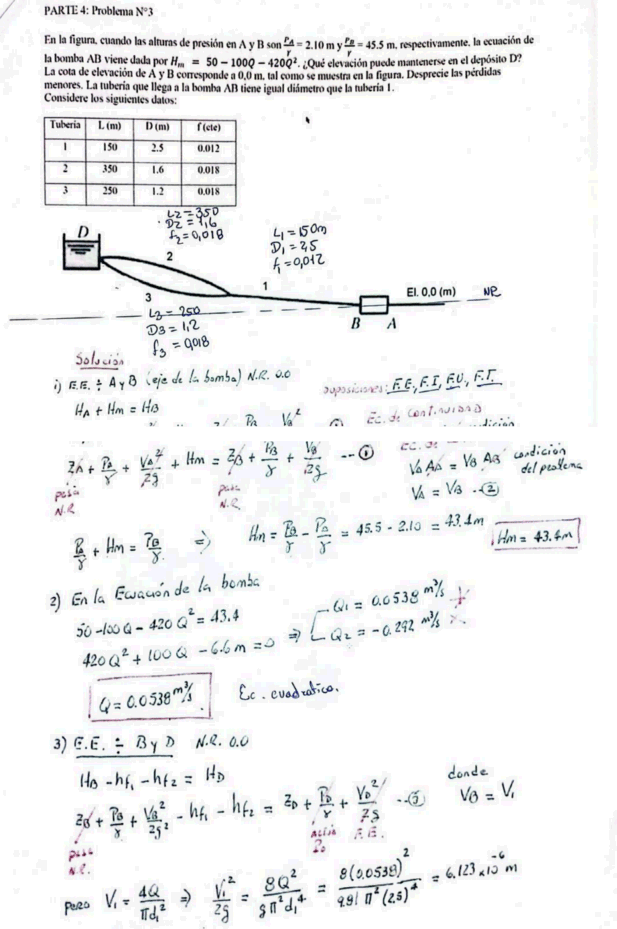 PARTE 4: Problema N°3
En la figura, cuando las alturas de presión en A y B son P_A/γ = 2.10 m y P_B/γ = 45.5 m, respectivamente, la ecuación de
la bomba AB viene dada por H_m = 50 − 100Q − 420Q². ¿Qué elevación puede mantenerse en el depósito D?
La cota de elevación de A y B corresponde a 0,0 m, tal como se muestra en la figura. Desprecie las pérdidas
menores. La tubería que llega a la bomba AB tiene igual diámetro que la tubería 1.
Considere los siguientes datos:
Tubería L (m) D (m) f (cte)
1 150 2.5 0.012
2 350 1.6 0.018
3 250 1.2 0.018
L2 = 350
D2 = 1,6
f2 = 0,018
L1 = 150m
D1 = 2,5
f1 = 0,012
D
2
1
3
El. 0,0 (m) NR
B A
L3 = 250
D3 = 1,2
f3 = 0,018
Solución
i) E.E. ÷ A y B (eje de la bomba) N.R. 0.0
suposiciones: F.E, F.I, F.U, F.T.
HA + Hm = HB
Ec. de continuidad
ZA + PA/γ + VA²/2g + Hm = ZB + PB/γ + VB/2g --- ①
pasa N.R. pasa N.R.
VA AA = VB AB condición del problema
VA = VB --②
P/γ + Hm = PB/γ ⇒ Hm = PB/γ - PA/γ = 45.5 - 2.10 = 43.4m
Hm = 43.4m
2) En la Ecuación de la bomba
50 - 100 Q - 420 Q² = 43.4
420 Q² + 100 Q - 6.6 m = 0 ⇒ Q1 = 0.0538 m³/s
Q2 = - 0.292 m³/s ×
Q = 0.0538 m³/s
Ec. cuadratica.
3) E.E. ÷ B y D N.R. 0.0
HB - hf1 - hf2 = HD
ZB + PB/γ + VB²/2g² - hf1 - hf2 = ZD + PD/γ + VD²/2g --③
donde VB = V1
pasa N.R. actúa Po F.E.
pero V1 = 4Q/πd1² ⇒ V1²/2g = 8Q²/gπ²d1⁴ = 8(0,0538)²/9.81 π² (2,5)⁴ = 6.123 x10⁻⁶ m